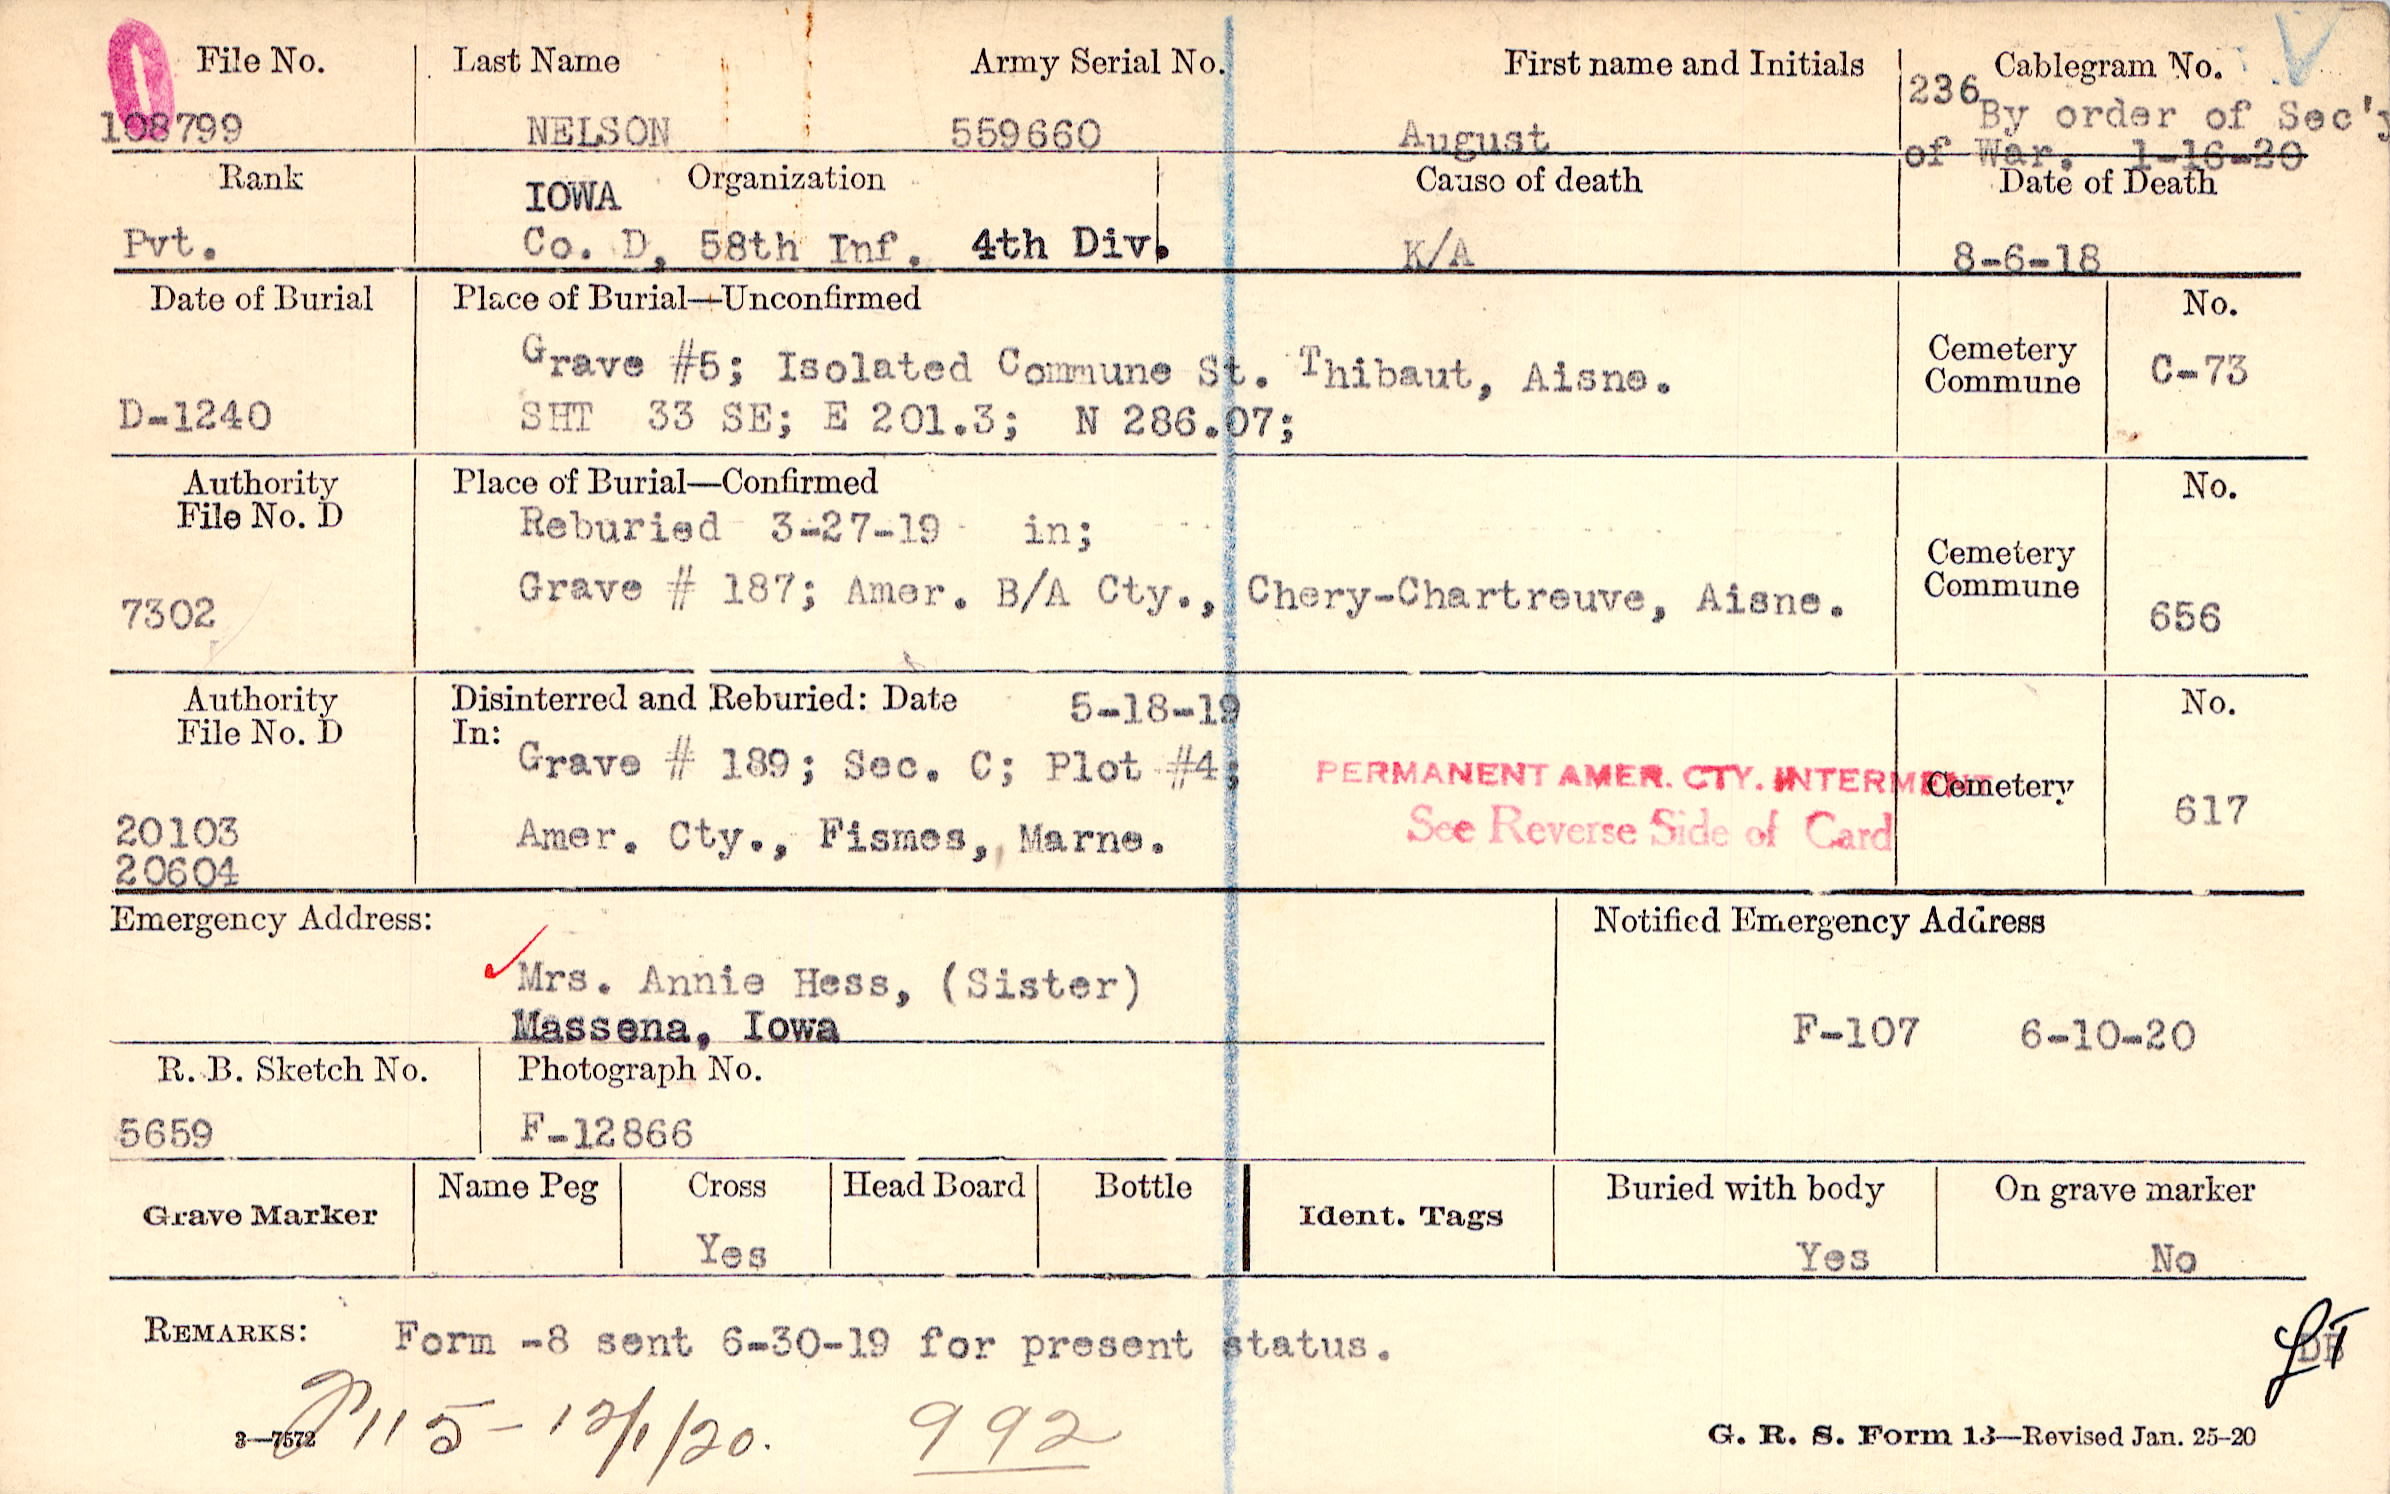 File No. Last Name Army Serial No. First name and Initials Cablegram No.
236
By order of Sec'y
108799 NELSON 559660 August
of War. 1-16-20
Rank Organization Cause of death Date of Death
IOWA
Pvt. Co. D, 58th Inf. 4th Div. K/A 8-6-18
Date of Burial Place of Burial—Unconfirmed No.
Grave #5; Isolated Commune St. Thibaut, Aisne. Cemetery Commune C-73
D-1240 SHT 33 SE; E 201.3; N 286.07;
Authority Place of Burial—Confirmed No.
File No. D Reburied 3-27-19 in;
Cemetery
7302 Grave # 187; Amer. B/A Cty., Chery-Chartreuve, Aisne. Commune 656
Authority Disinterred and Reburied: Date 5-18-19 No.
File No. D In:
Grave # 189; Sec. C; Plot #4; PERMANENT AMER. CTY. INTERMENT Cemetery 617
20103 Amer. Cty., Fismes, Marne. See Reverse Side of Card
20604
Emergency Address: Notified Emergency Address
Mrs. Annie Hess, (Sister)
Massena, Iowa F-107 6-10-20
R. B. Sketch No. Photograph No.
5659 F-12866
Grave Marker Name Peg Cross Head Board Bottle Ident. Tags Buried with body On grave marker
Yes Yes No
REMARKS: Form -8 sent 6-30-19 for present status.
115-12/1/20. 992
3—7572 G. R. S. Form 13—Revised Jan. 25-20